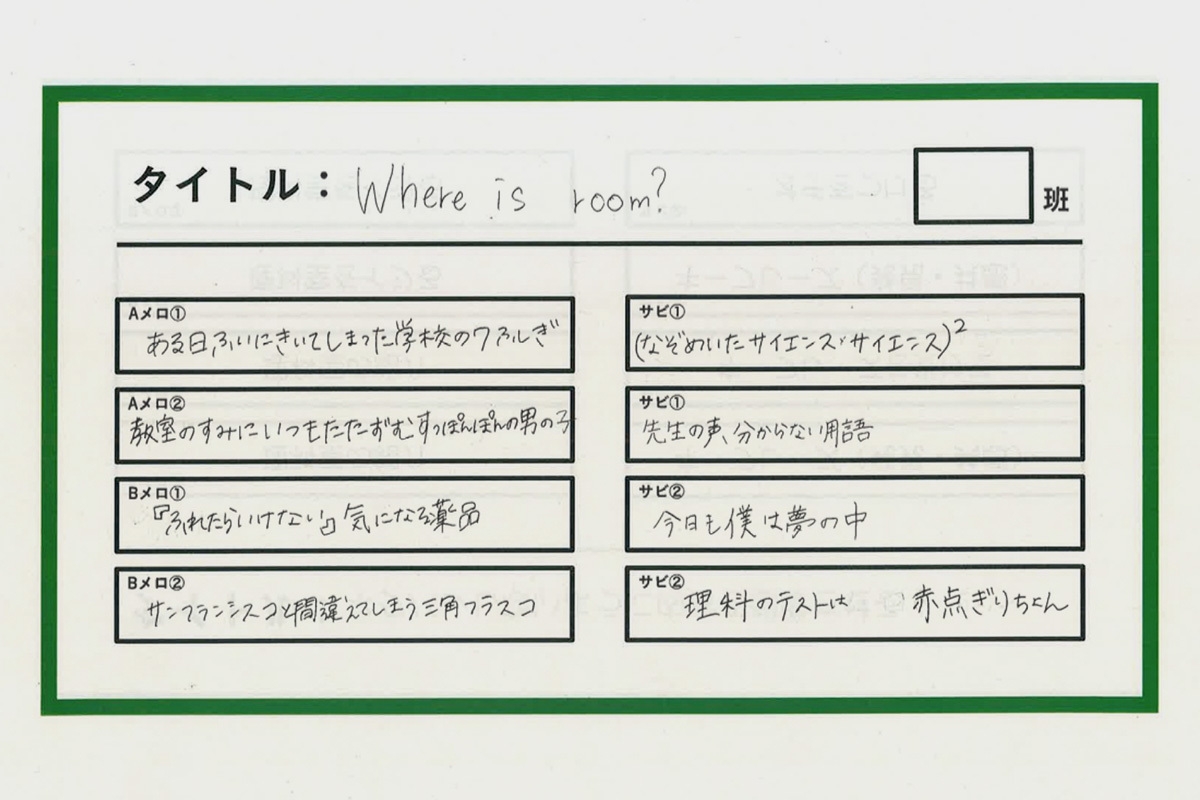 タイトル：Where is room?
班
Aメロ①
ある日ふいにきいてしまった学校のワふしぎ
Aメロ②
教室のすみにいつもたたずむすっぽんぽんの男の子
Bメロ①
『ふれたらいけない』気になる薬品
Bメロ②
サンフランシスコと間違えてしまう三角フラスコ
サビ①
(なぞめいたサイエンス・サイエンス)²
サビ①
先生の声、分からない用語
サビ②
今日も僕は夢の中
サビ②
理科のテストは 赤点ぎりちょん